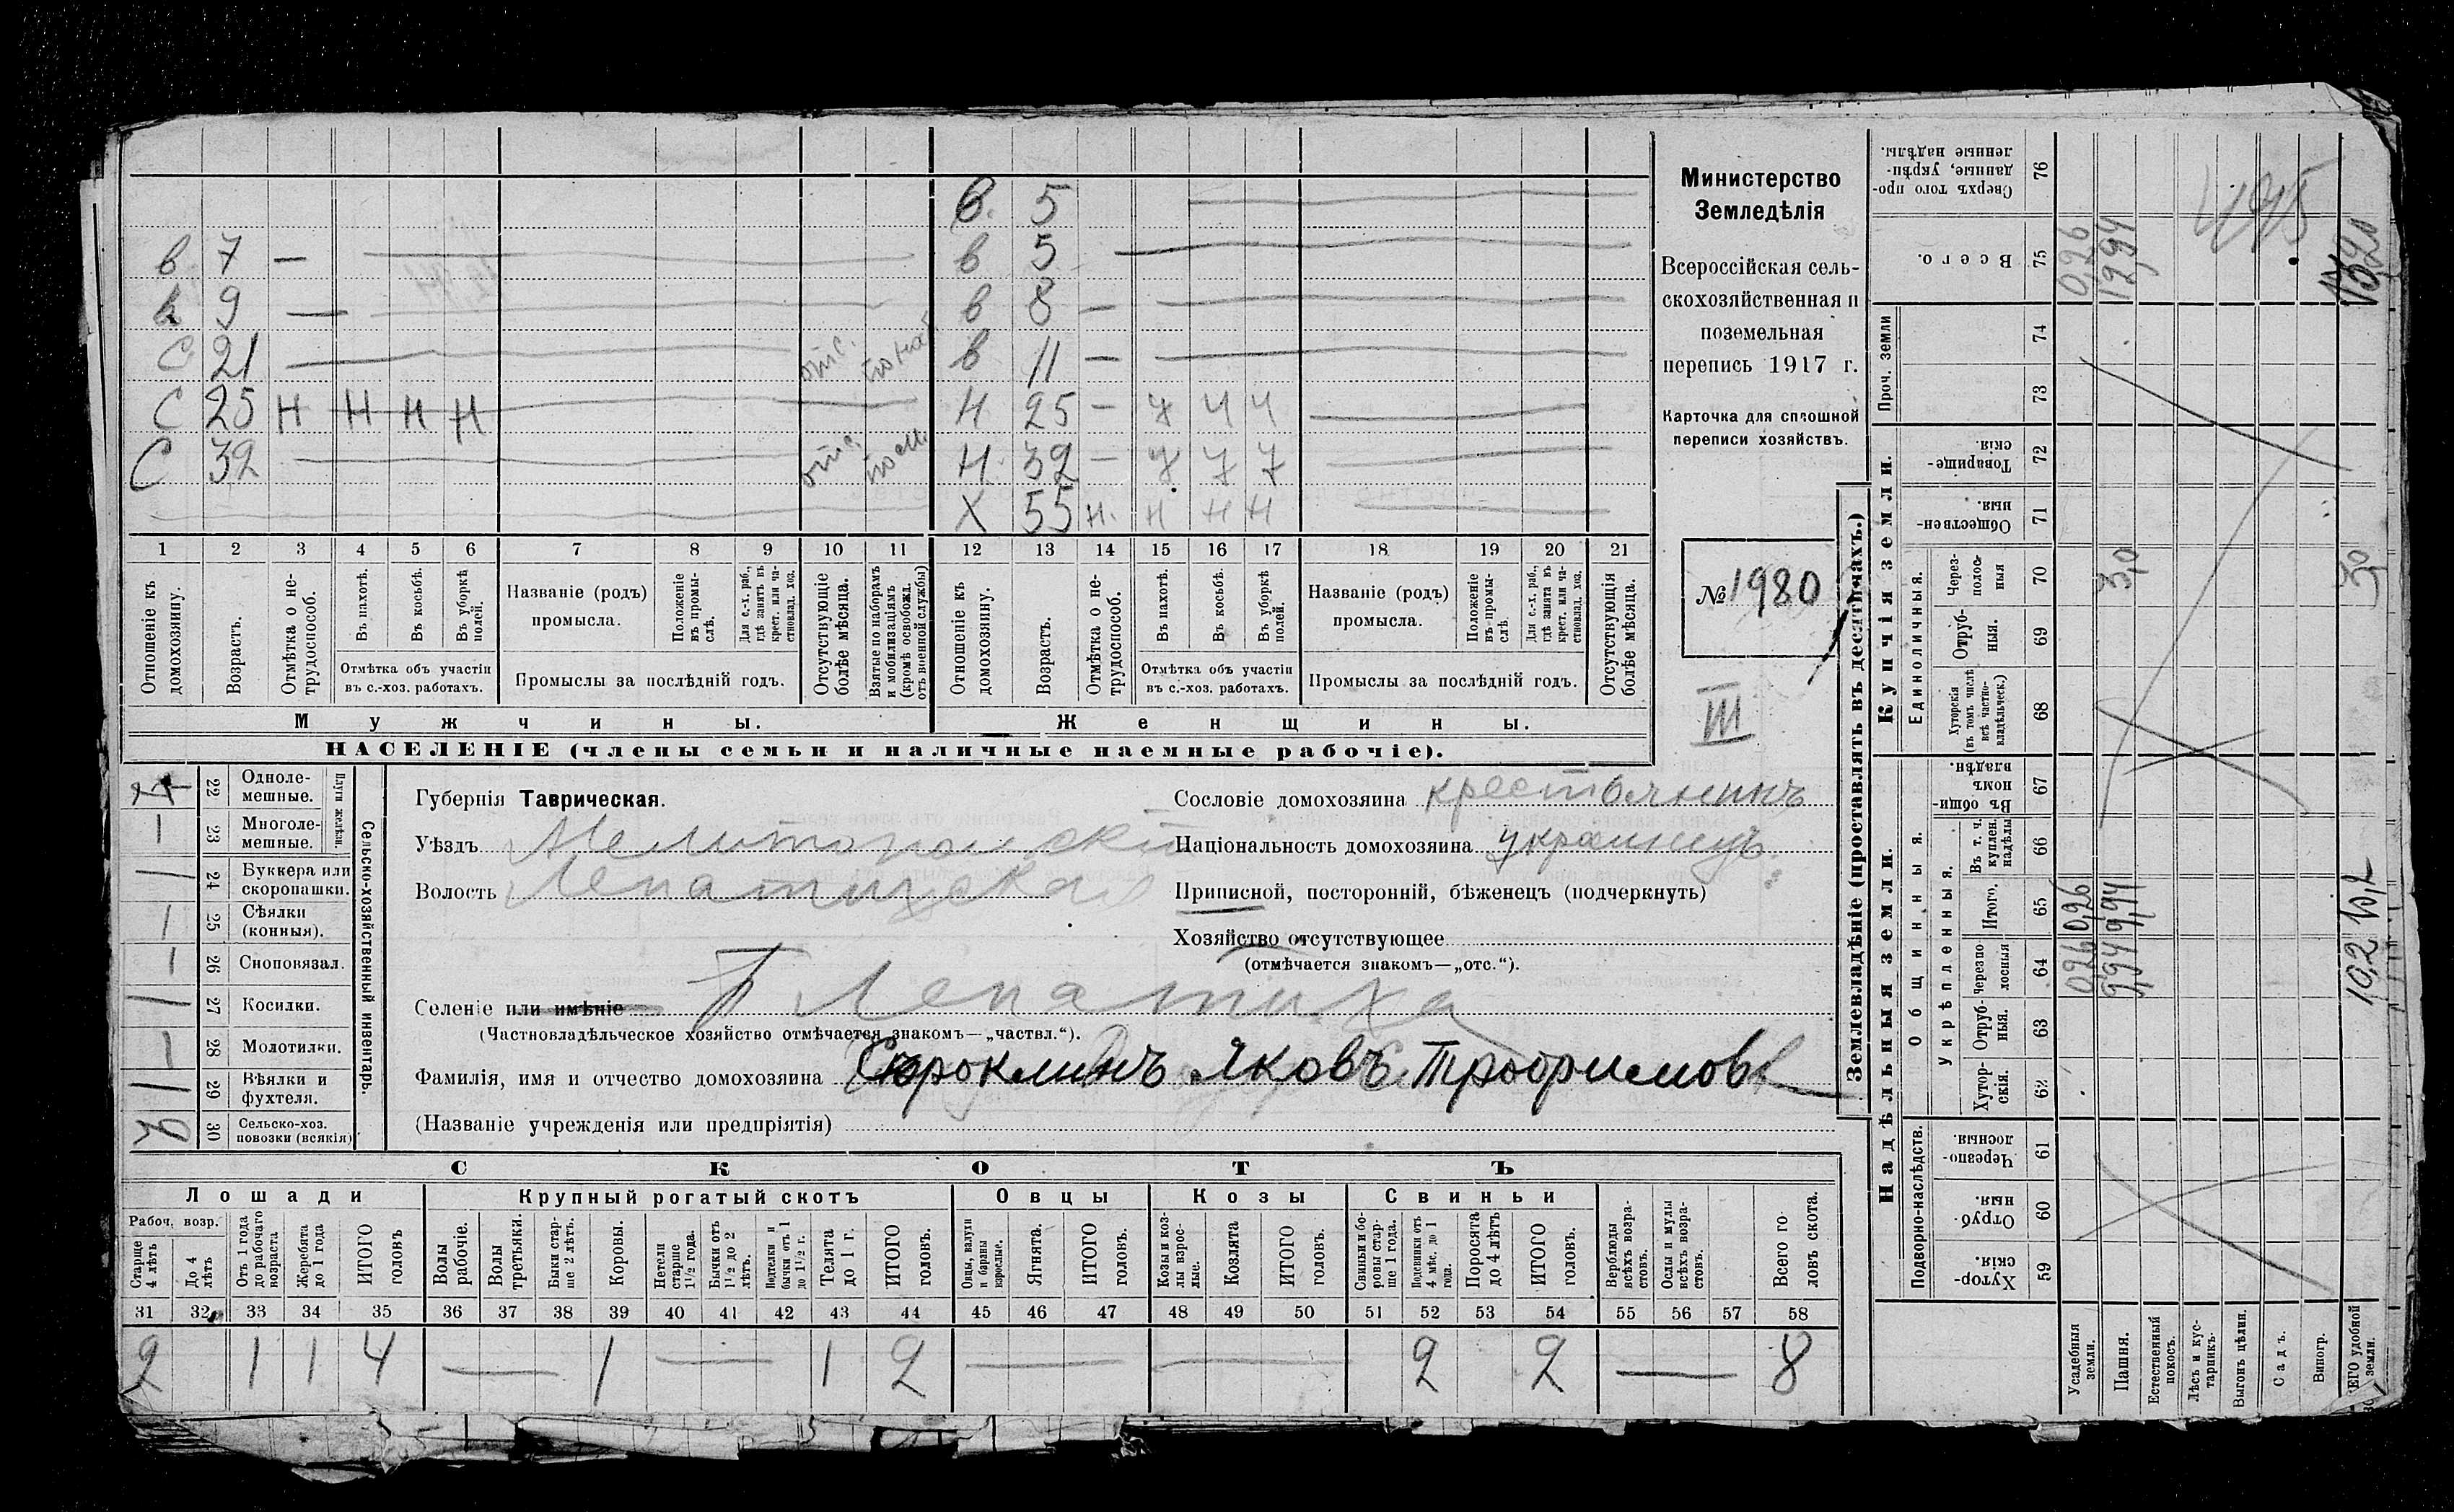 в. 5
в 7 — в 5
в 9 — в 8 —
С 21 — отс. по наб. в 11 —
С 25 Н Н Н Н Н 25 — Ч Ч Ч
С 32 — отс. по м. Н. 32 — Ч Ч Ч
Х 55 н. н н н
1 2 3 4 5 6 7 8 9 10 11 12 13 14 15 16 17 18 19 20 21
Отношеніе къ домохозяину.
Возрастъ.
Отмѣтка о нетрудоспособ.
Въ пахотѣ.
Въ косьбѣ.
Въ уборкѣ полей.
Отмѣтка объ участіи въ с.-хоз. работахъ.
Названіе (родъ) промысла.
Положеніе въ промыслѣ.
Для с.-х. раб., гдѣ занятъ въ крест. или частновлад. хоз.
Промыслы за послѣдній годъ.
Отсутствующіе болѣе мѣсяца.
Взятые по наборамъ и мобилизаціямъ (кромѣ освобожд. отъ военной службы)
Отношеніе къ домохозяину.
Возрастъ.
Отмѣтка о нетрудоспособ.
Въ пахотѣ.
Въ косьбѣ.
Въ уборкѣ полей.
Отмѣтка объ участіи въ с.-хоз. работахъ.
Названіе (родъ) промысла.
Положеніе въ промыслѣ.
Для с.-х. раб., гдѣ занята въ крест. или частновлад. хоз.
Промыслы за послѣдній годъ.
Отсутствующія болѣе мѣсяца.
Мужчины. Женщины.
НАСЕЛЕНІЕ (члены семьи и наличные наемные рабочіе).
Министерство
Земледѣлія
Всероссійская сель-
скохозяйственная и
поземельная
перепись 1917 г.
Карточка для сплошной
переписи хозяйствъ.
№ 1980
III
Сельско-хозяйственный инвентарь.
Плуги желѣзн.
22 Одноле-мешные.
— 23 Многоле-мешные.
— 24 Буккера или скоропашки.
— 25 Сѣялки (конныя).
— 26 Сноповязал.
— 27 Косилки.
— 28 Молотилки.
— 29 Вѣялки и фухтеля.
30 Сельско-хоз. повозки (всякія)
Губернія Таврическая.
Уѣздъ Мелитопольскій
Волость Лепатихская
Сословіе домохозяина крестьянинъ
Національность домохозяина украинецъ.
Приписной, посторонній, бѣженецъ (подчеркнуть)
Хозяйство отсутствующее
(отмѣчается знакомъ—„отс.“).
Селеніе или имѣніе Лепатиха
(Частновладѣльческое хозяйство отмѣчается знакомъ—„частвл.“).
Фамилія, имя и отчество домохозяина Сороклинъ Яковъ Трофимов
(Названіе учрежденія или предпріятія)
СКОТЪ
Лошади Крупный рогатый скотъ Овцы Козы Свиньи
Рабоч. возр.
Старше 4 лѣтъ
До 4 лѣтъ
Отъ 1 года до рабочаго возраста
Жеребята до 1 года
ИТОГО головъ
Волы рабочіе.
Волы третьяки.
Быки старше 2 лѣтъ.
Коровы.
Нетели старше 1½ года.
Бычки отъ 1½ до 2 лѣтъ.
Подтелки и бычки отъ 1 до 1½ г.
Телята до 1 г.
ИТОГО головъ.
Овцы, валухи и бараны взрослые.
Ягнята.
ИТОГО головъ.
Козы и козлы взрослые.
Козлята
ИТОГО головъ.
Свиньи и боровы старше 1 года.
Подсвинки отъ 4 мѣс. до 1 года.
Поросята до 4 лѣтъ
ИТОГО головъ.
Верблюды всѣхъ возрастовъ.
Ослы и мулы всѣхъ возрастовъ.
Всего головъ скота.
31 32 33 34 35 36 37 38 39 40 41 42 43 44 45 46 47 48 49 50 51 52 53 54 55 56 57 58
2 1 1 4 — 1 — 1 2 — — 2 2 — 8
Землевладѣніе (проставлять въ десятинахъ.)
Надѣльныя земли. Купчія земли.
Подворно-наслѣдств.
Общинныя.
Укрѣпленныя.
Единоличныя.
Проч. земли
Хуторскія 59
Отрубныя. 60
Черезполосныя. 61
Хуторскія. 62
Отрубныя. 63
Черезполосныя 64
Итого. 65
Въ т. ч. куплен. надѣлы 66
Въ общинномъ владѣн. 67
Хуторскія (въ томъ числѣ всѣ частновладѣльческ.) 68
Отрубныя. 69
Черезполосныя 70
Общественныя. 71
Товарищескія. 72
73
74
Всего. 75
Сверхъ того проданные, укрѣпленные надѣлы. 76
Усадебныя земли. 0,26 0,26 0,26
Пашня. 9,94 9,94 3,0 12,94
Естественный покосъ.
Лѣсъ и кустарникъ.
Выгонъ цѣлин.
Садъ.
Виногр.
ВСЕГО удобной земли. 10,2 10,2 3,0 13,20